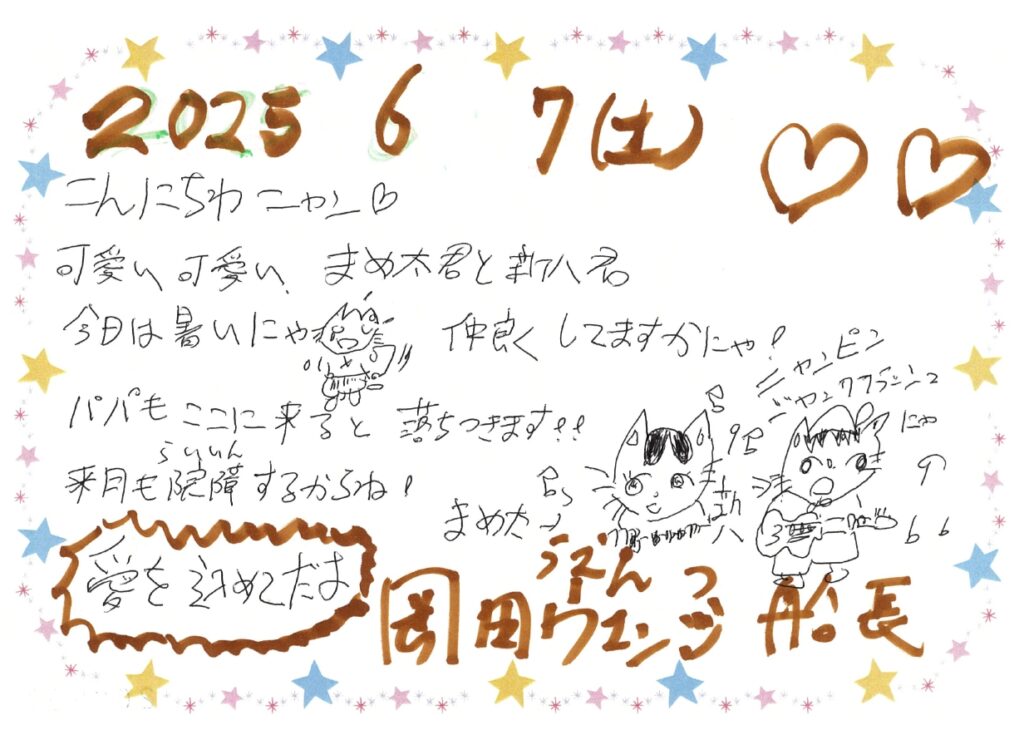 2025 6 7(土)
こんにちわ ニャン♡
可愛い、可愛い、まめ太君と新八君
今日は暑いにゃ 仲良くしてますかにゃ!
パパもここに来ると落ちつきます!!
らいいん
来月も院障するからね!
ニャンピン
ジャンクフラッシュ
にゃ
まめ太
新八
愛を込めてだよ
岡田 船長